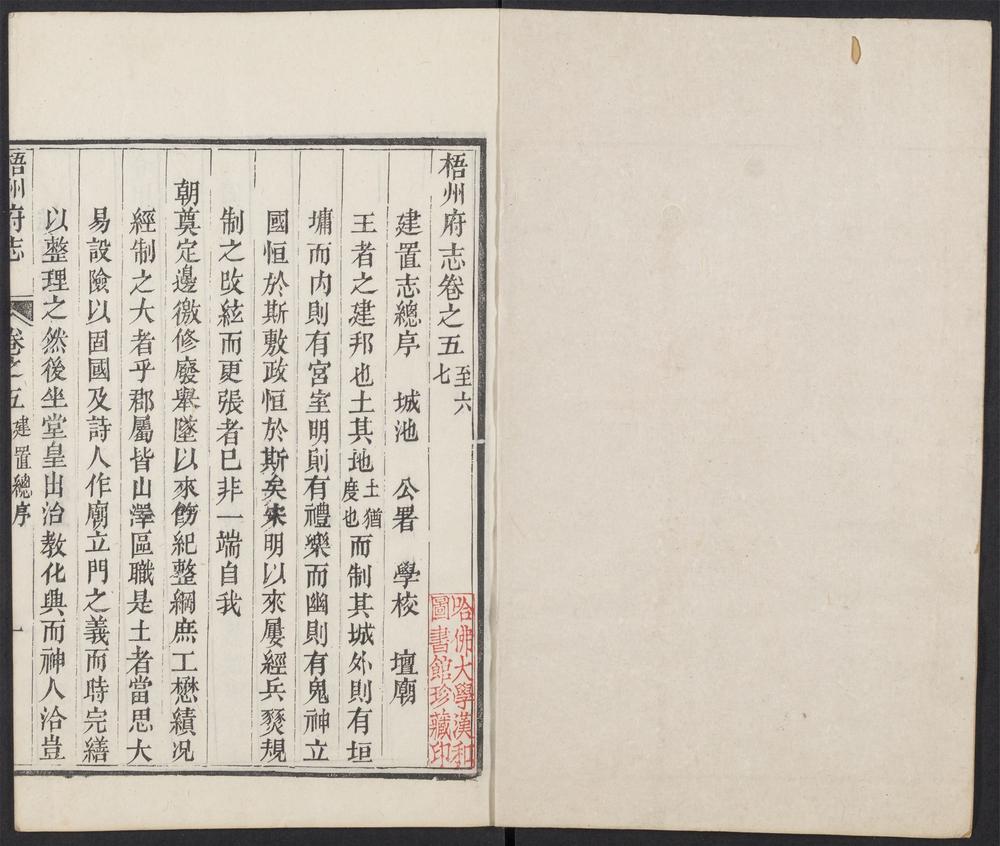 梧州府志卷之五至六七
建置志總序　城池　公署　學校　壇廟
王者之建邦也土其地土猶度也而制其城外則有垣
墉而内則有宮室明則有禮樂而幽則有鬼神立
國恒於斯敷政恒於斯矣宋明以來屢經兵燹規
制之改絃而更張者已非一端自我
朝奠定邊徼修廢舉墜以來飭紀整綱庶工懋績况
經制之大者乎郡屬皆山澤區職是土者當思大
易設險以固國及詩人作廟立門之義而時完繕
以整理之然後坐堂皇出治教化興而神人洽豈
梧州府志　卷之五建置總序　一
哈佛大學漢和
圖書館珍藏印